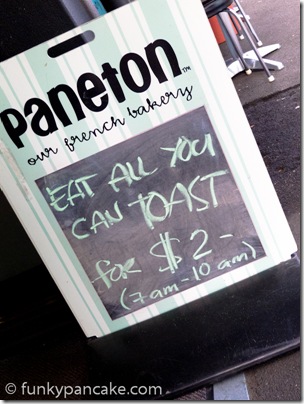 paneton™
our french bakery
EAT ALL YOU
CAN TOAST
for $2-
(7am-10am)
© funkypancake.com